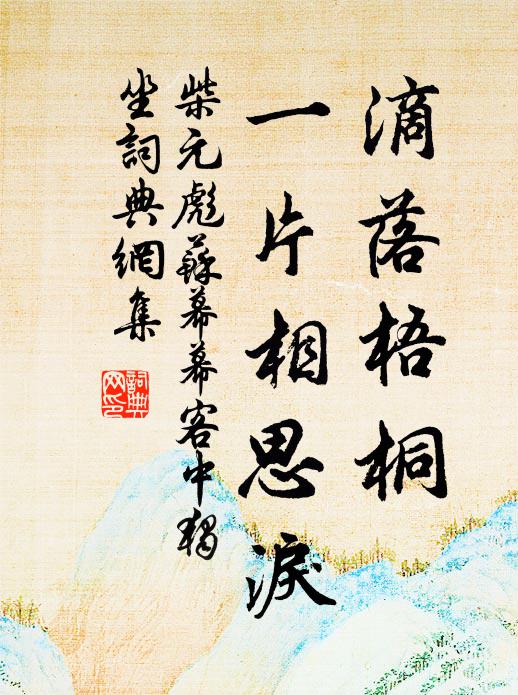 滴落梧桐
一片相思淚
柴元彪蘇幕幕客中獨
坐詞典網集
詞典
网印